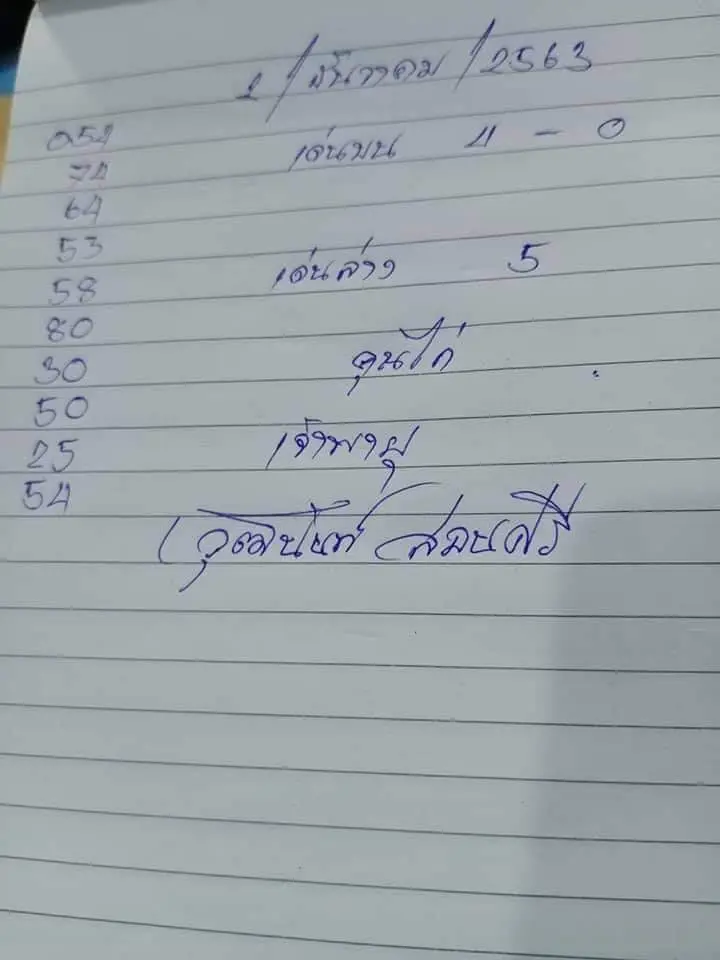 1/มีนาคม/2563
054
74
64
53
58
80
30
50
25
54
เด่นบน 4 - 0
เด่นล่าง 5
คุนไก่
เจ้าพายุ
(วุฒินันท์ สมนศรี